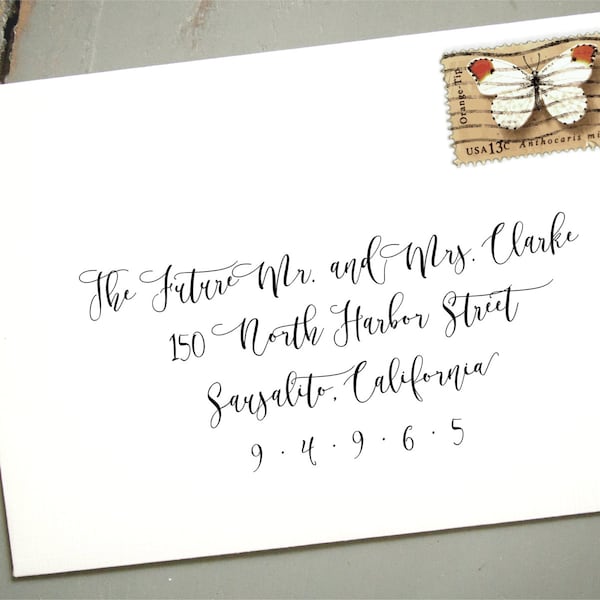 Orange-Tip
USA 13c Anthocaris mi
The Future Mr. and Mrs. Clarke
150 North Harbor Street
Sausalito, California
9 · 4 · 9 · 6 · 5